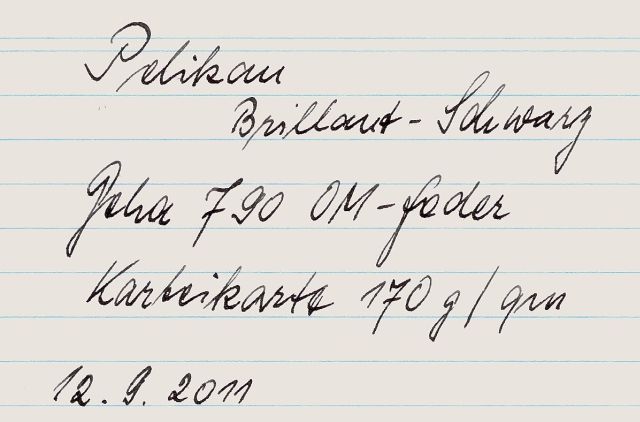 Pelikan
Brillant-Schwarz
Geha 790 OM-Feder
Karteikarte 170 g/qm
12.9.2011